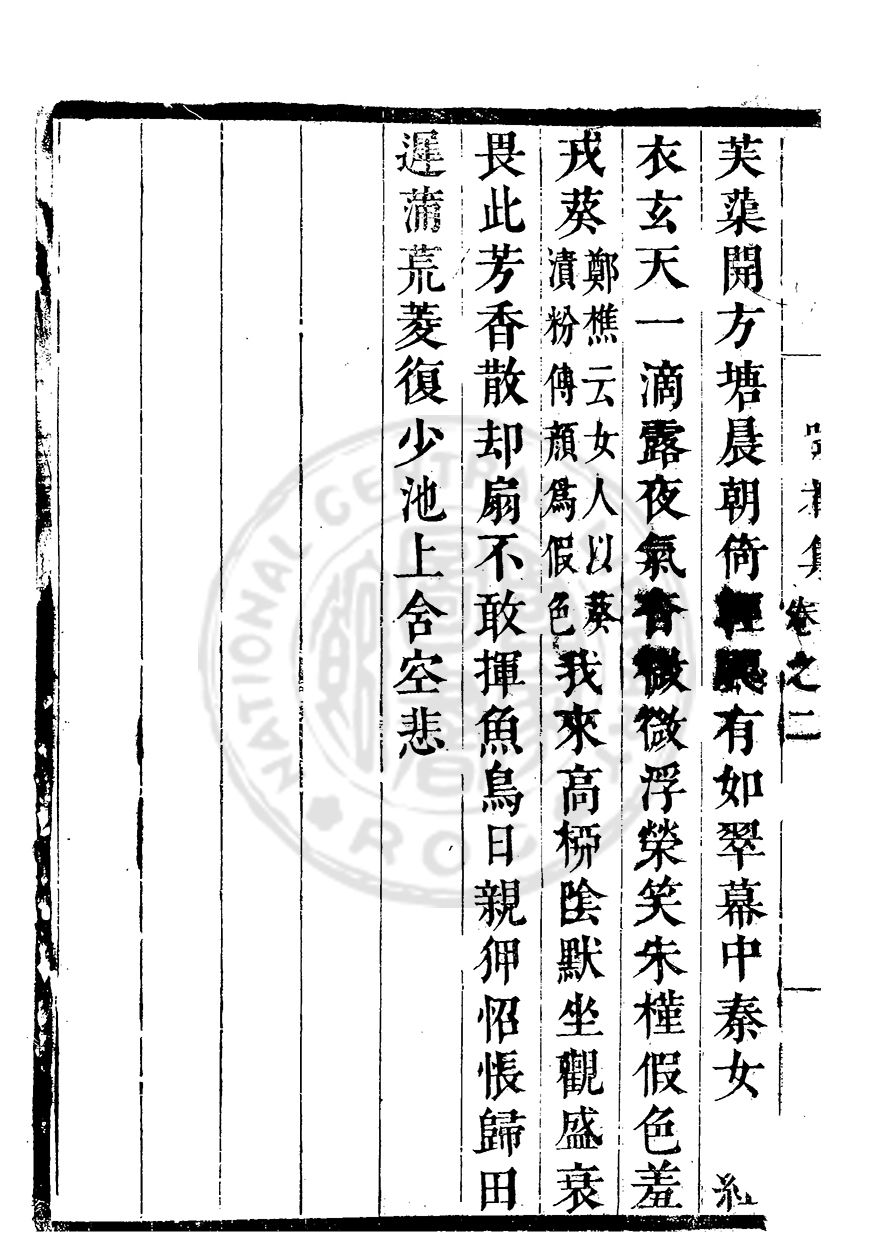 芙蕖開方塘晨朝倚輕颸有如翠幕中秦女紅
衣玄天一滴露夜氣香微微浮榮笑朱槿假色羞
戎葵鄭樵云女人以葵漬粉傅顏為假色我來高桺陰默坐觀盛衰
畏此芳香散却扇不敢揮魚鳥日親狎怊悵歸田
遲蒲荒菱復少池上舍空悲
集卷之二
NATIONAL CENTRAL